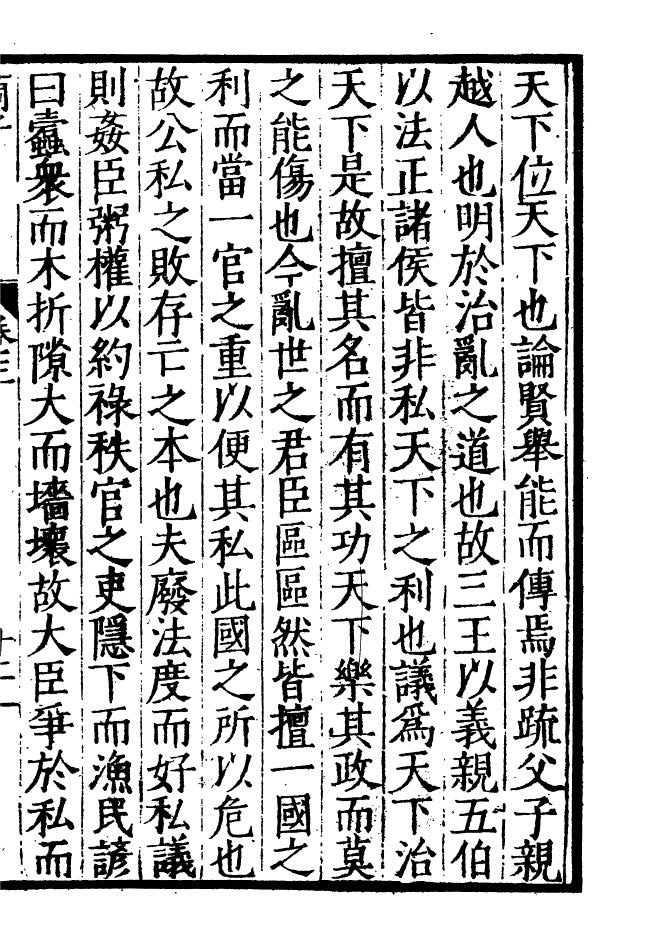 天下位天下也論賢舉能而傳焉非疏父子親
越人也明於治亂之道也故三王以義親五伯
以法正諸侯皆非私天下之利也議爲天下治
天下是故擅其名而有其功天下樂其政而莫
之能傷也今亂世之君臣區區然皆擅一國之
利而當一官之重以便其私此國之所以危也
故公私之敗存亡之本也夫廢法度而好私議
則姦臣粥權以約祿秩官之吏隱下而漁民諺
曰蠹衆而木折隙大而墻壞故大臣爭於私而